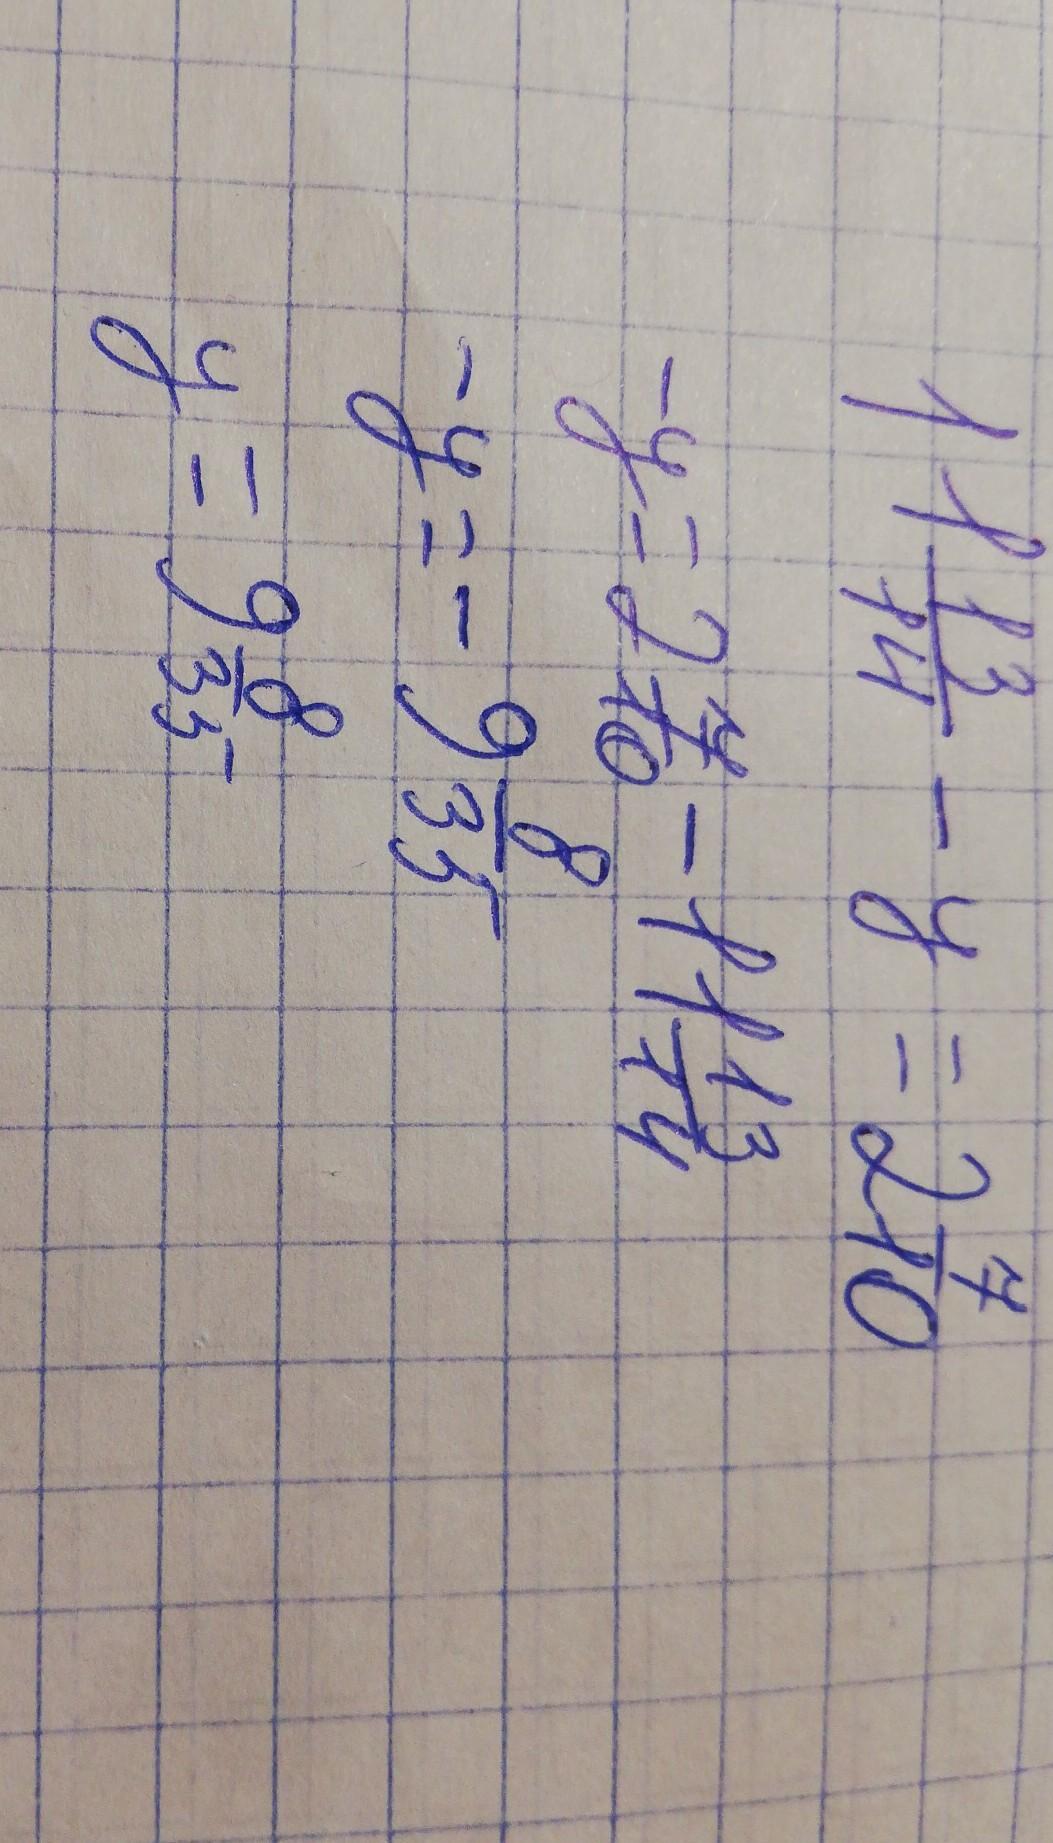 11 13/14 - y = 2 7/10
-y = 2 7/10 - 11 13/14
-y = - 9 8/35
y = 9 8/35